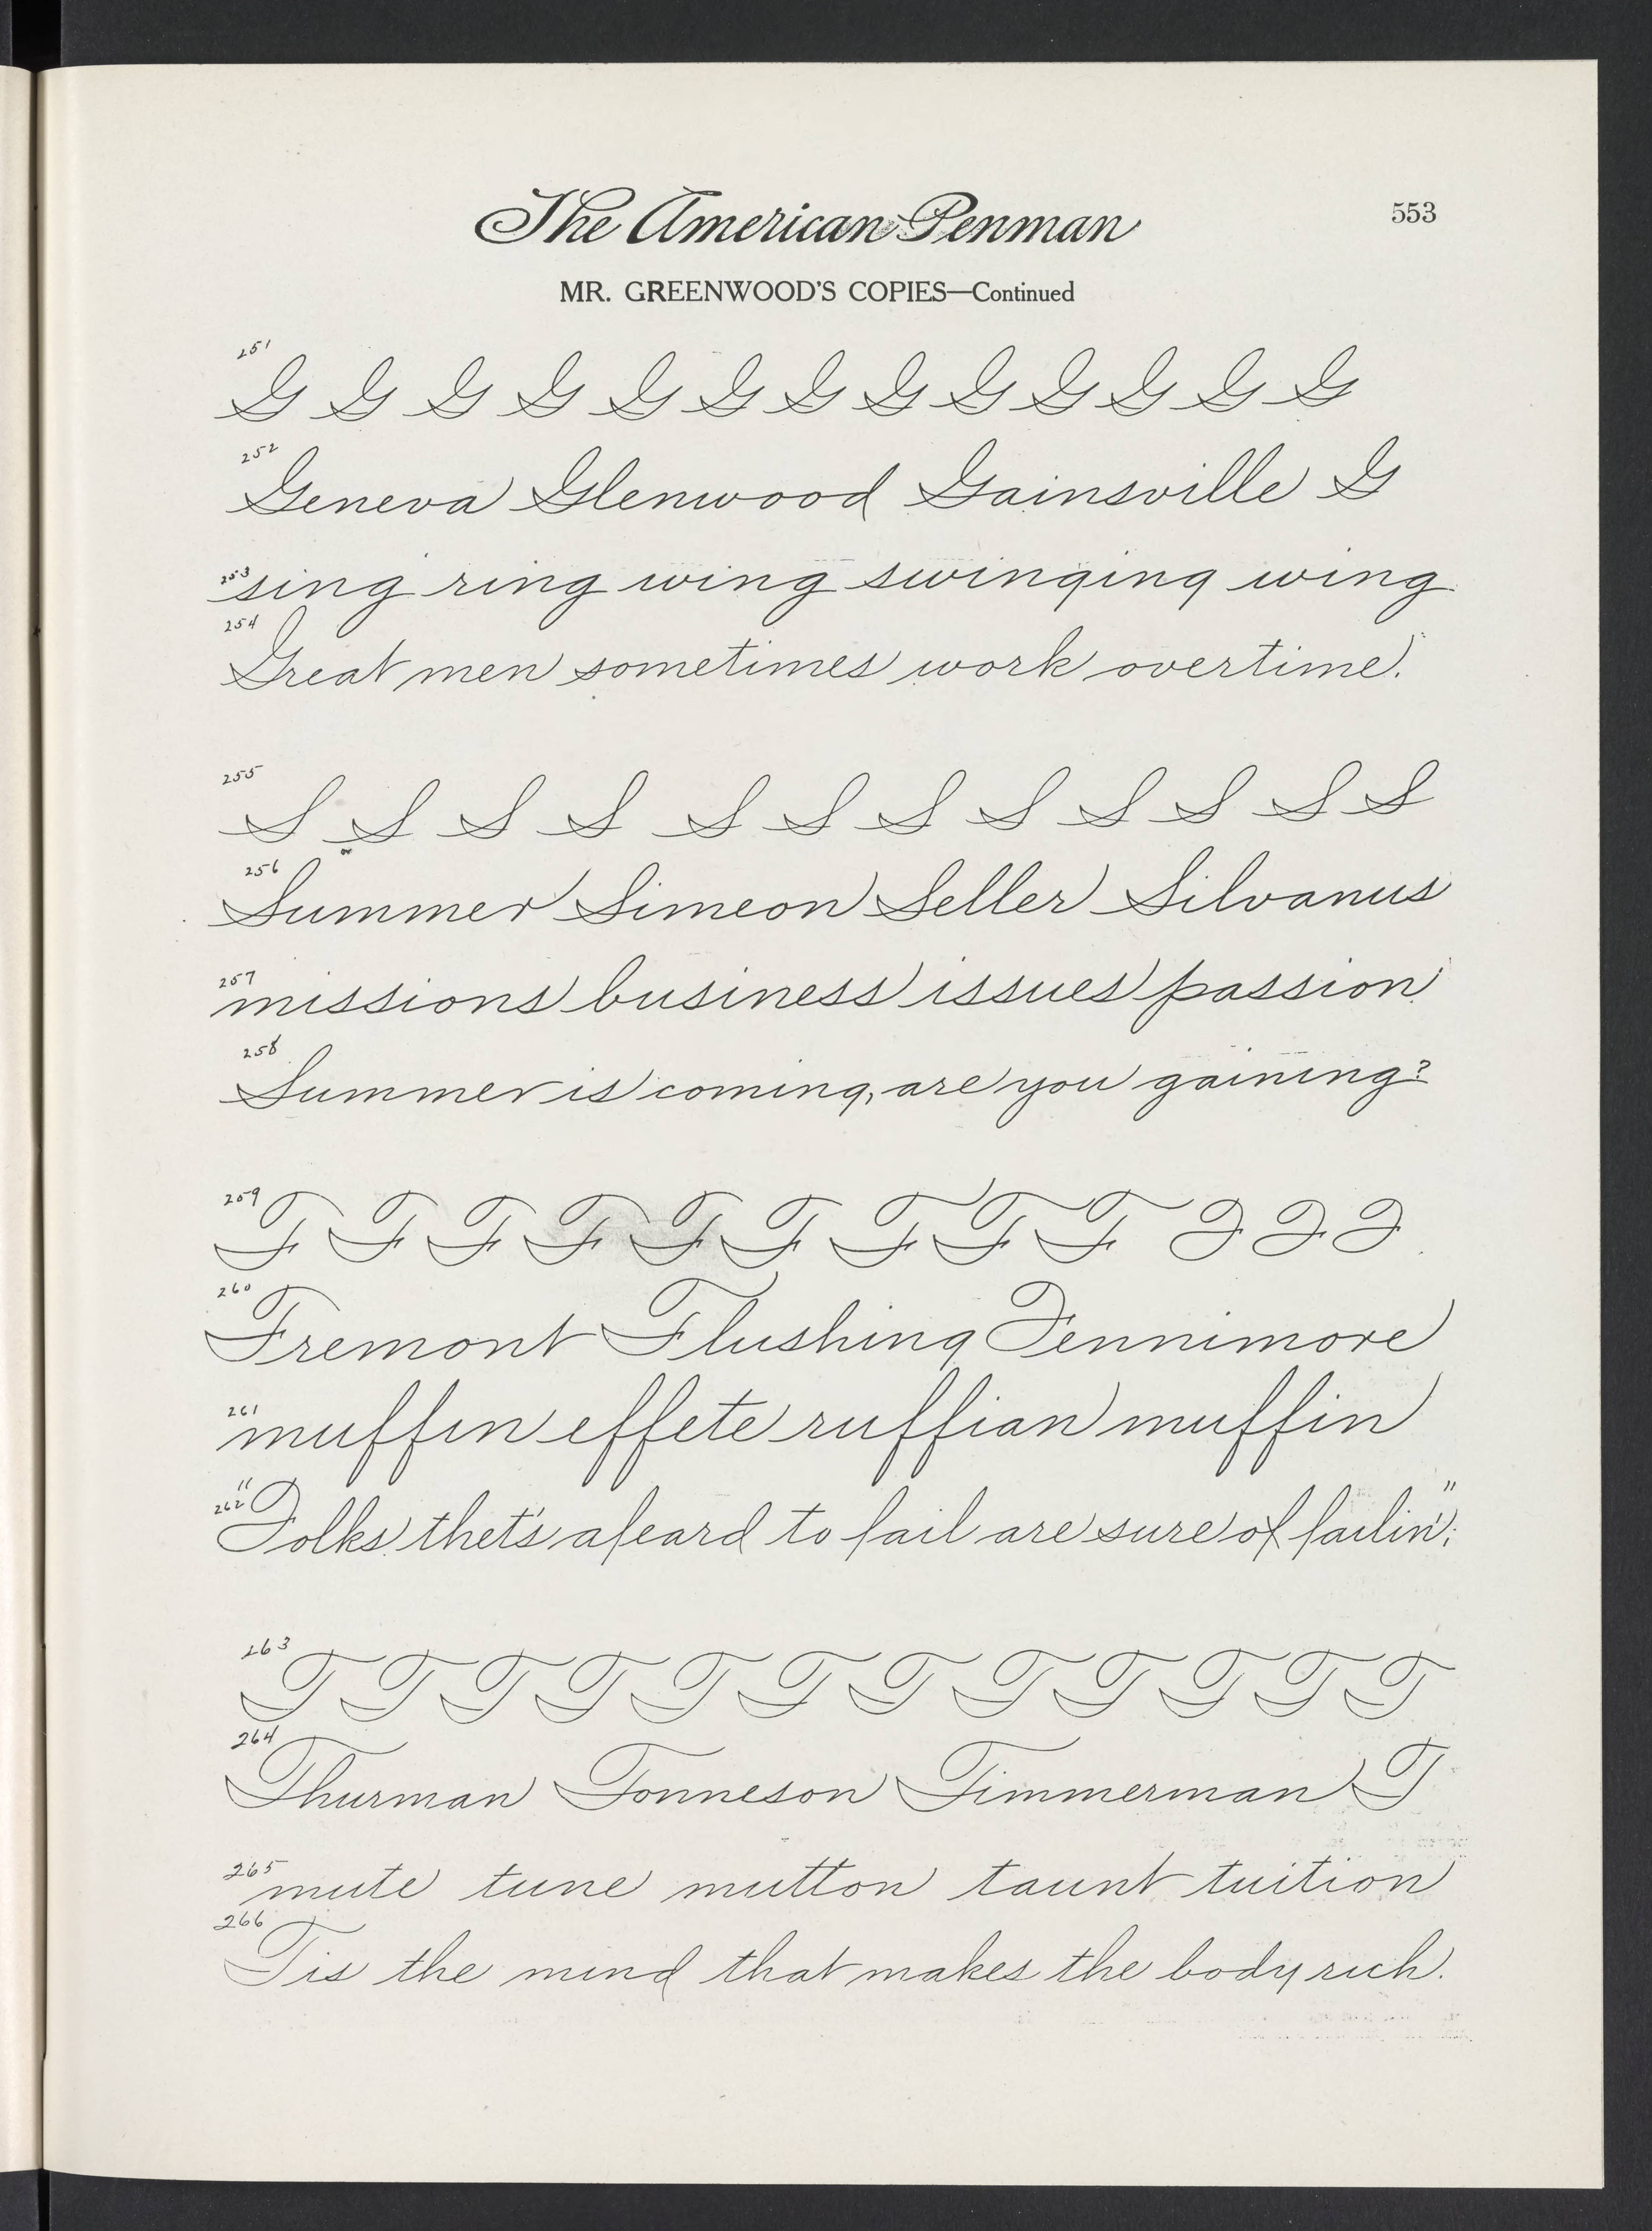 The American Penman 553
MR. GREENWOOD'S COPIES—Continued
251 G G G G G G G G G G G G G
252 Geneva Glenwood Gainsville G
253 sing ring wing swinging wing
254 Great men sometimes work overtime.
255 S S S S S S S S S S S S
256 Summer Simeon Seller Silvanus
257 missions business issues passion
258 Summer is coming, are you gaining?
259 F F F F F F F F F F F F
260 Fremont Flushing Fennimore
261 muffin effete ruffian muffin
262 "Folks thet's afeard to fail are sure of failin';"
263 T T T T T T T T T T T T
264 Thurman Tonneson Timmerman T
265 mute tune mutton taunt tuition
266 Tis the mind that makes the body rich.